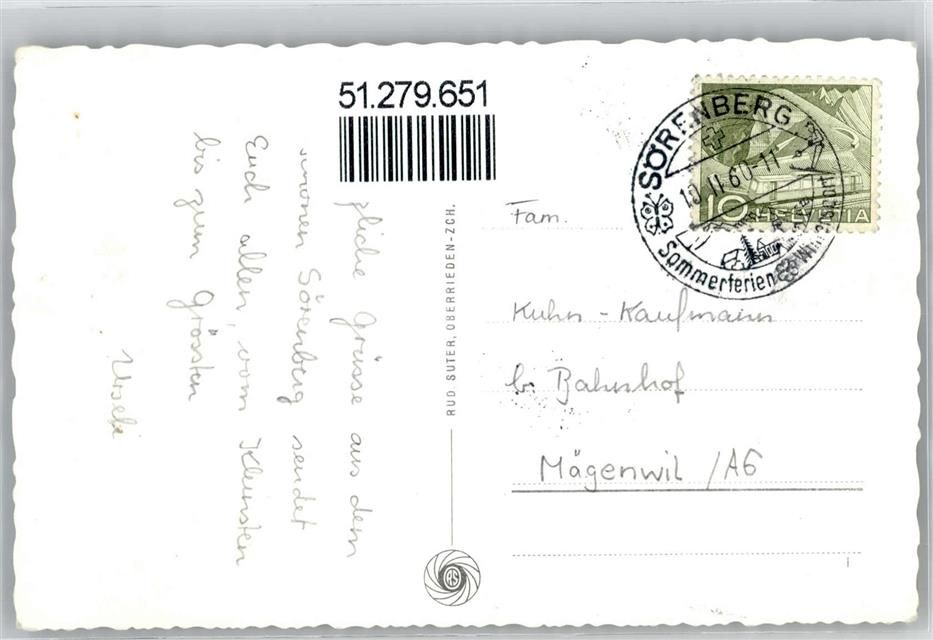 51.279.651
zliche Grüsse aus dem
Sörenberg sendet
Euch allen, vom Kleinsten
bis zum Grössten
Urseli
RUD SUTER, OBERRIEDEN-ZCH.
RS
SÖRENBERG
10. II 60-11
Sommerferien Wintersport
10 HELVETIA
Fam.
Kuhn-Kaufmann
b. Bahnhof
Mägenwil /AG